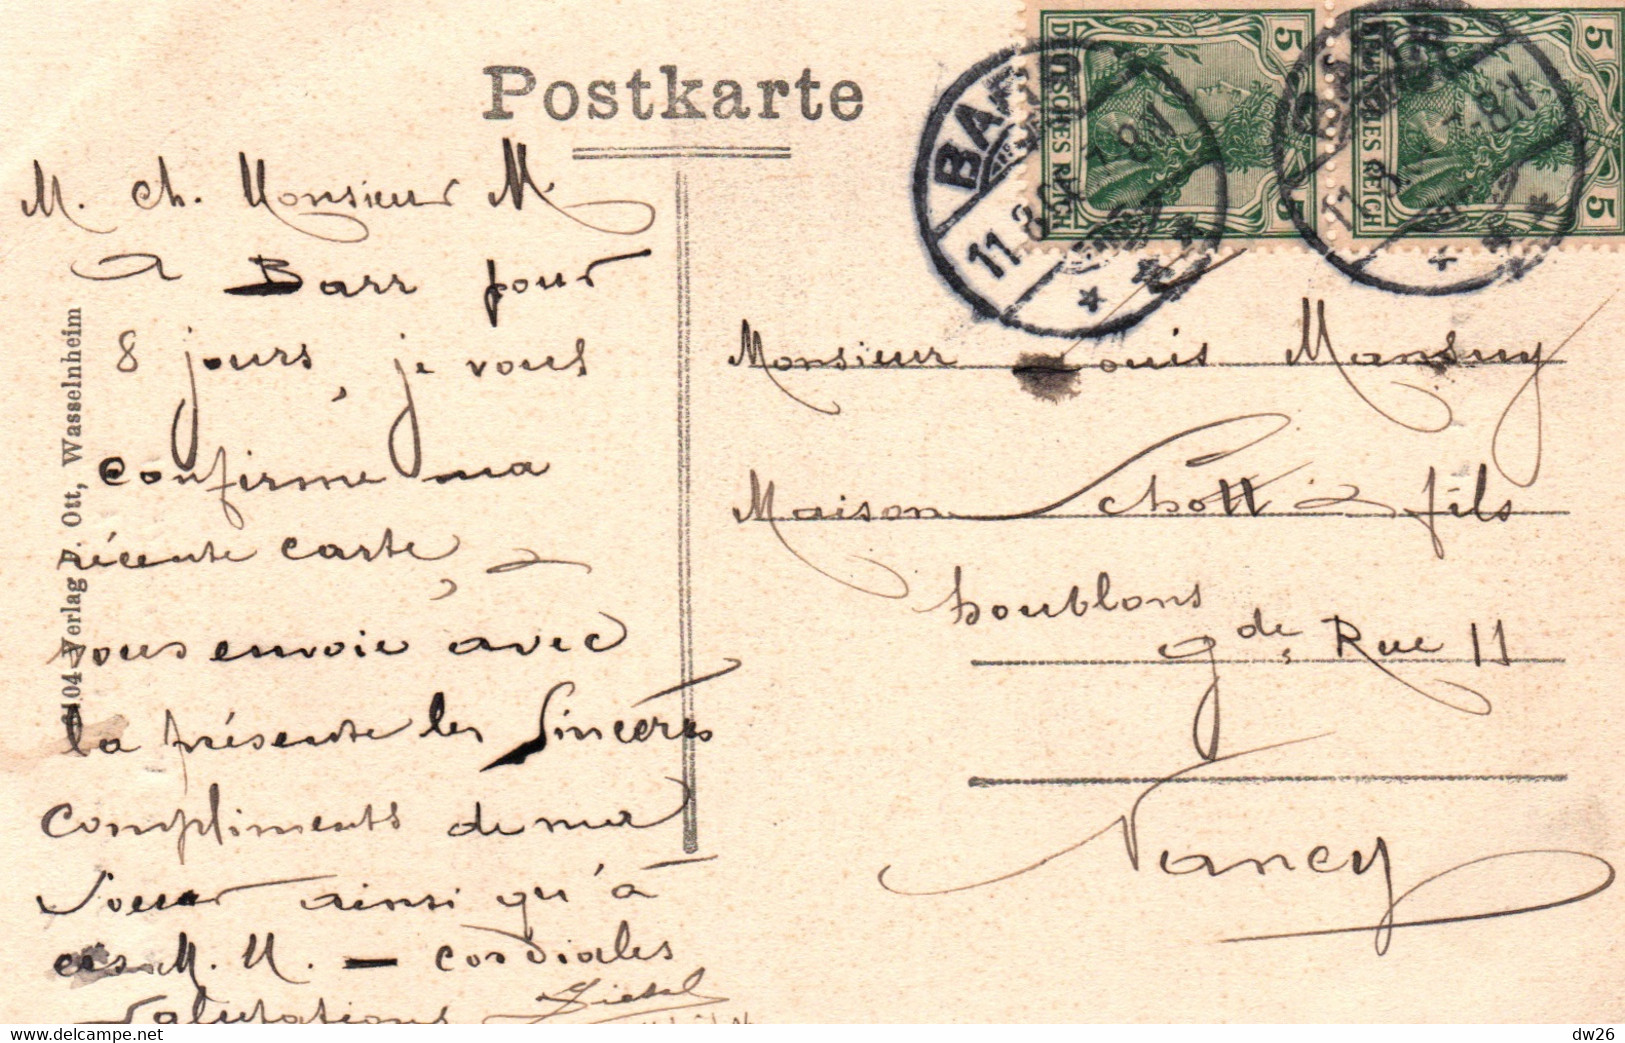 Postkarte
DEUTSCHES REICH 5 5
DEUTSCHES REICH 5 5
BARR
11.8.
7-8N
M. Ch. Monsieur M.
A Barr pour
8 jours, je vous
confirme ma
récente carte,
vous envoie avec
la présente les Sincères
Compliments de ma
Soeur ainsi qu'à
ces M. M. — Cordiales
Salutations
Monsieur Louis Mansuy
Maison Schott & fils
houblons
gde Rue 11
Nancy
Verlag Ott, Wasselnheim
dw26